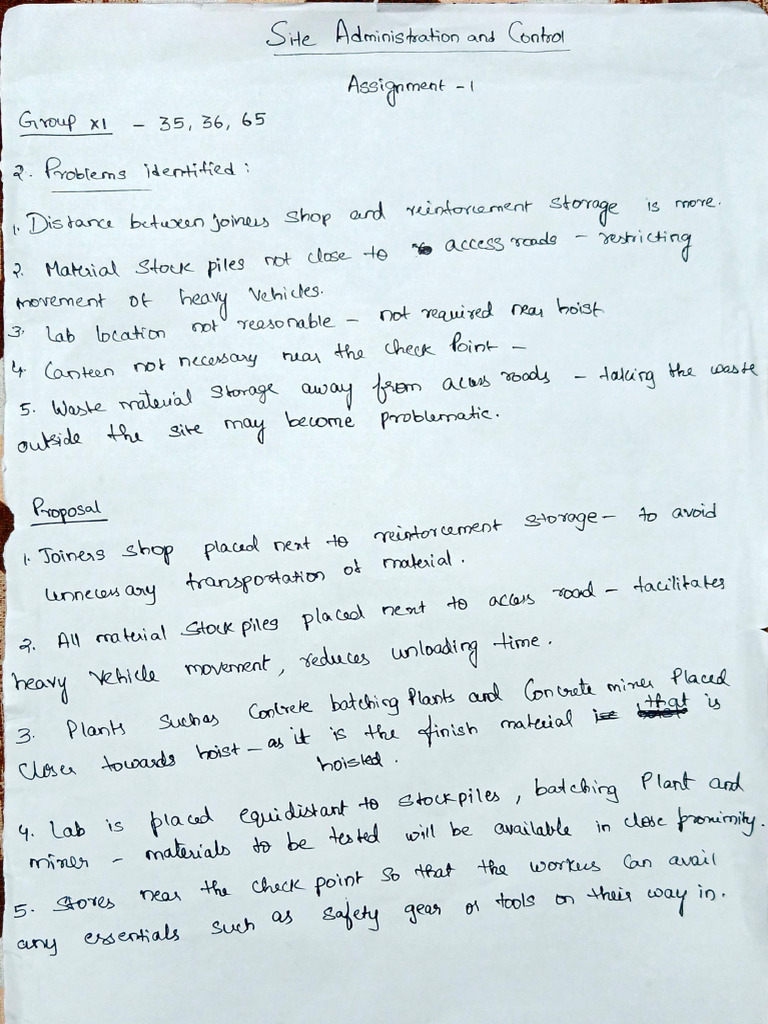 Site Administration and Control
Assignment - 1
Group XI - 35, 36, 65
2. Problems identified :
1. Distance between joiners shop and reinforcement storage is more.
2. Material stock piles not close to access roads - restricting
movement of heavy vehicles.
3. Lab location not reasonable - not required near hoist
4. Canteen not necessary near the check point -
5. Waste material storage away from access roads - taking the waste
outside the site may become problematic.
Proposal
1. Joiners shop placed next to reinforcement storage - to avoid
unnecessary transportation of material.
2. All material stock piles placed next to access road - facilitates
heavy vehicle movement, reduces unloading time.
3. Plants such as concrete batching plants and concrete mixer placed
closer towards hoist - as it is the finish material that is
hoisted.
4. Lab is placed equidistant to stockpiles, batching plant and
mixer - materials to be tested will be available in close proximity.
5. Stores near the check point so that the workers can avail
any essentials such as safety gear or tools on their way in.